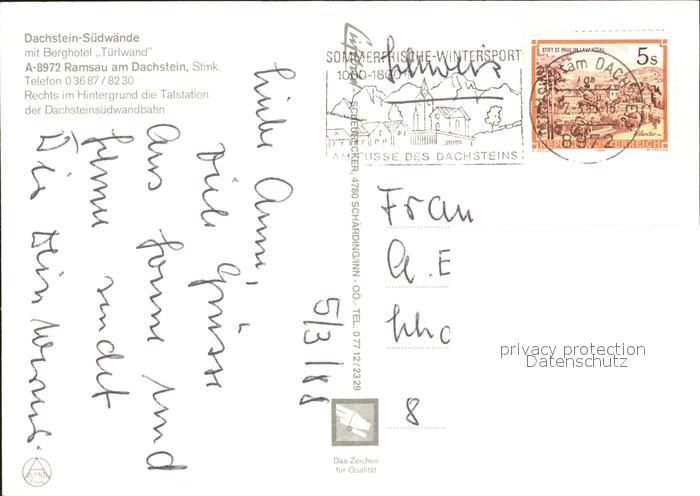 Dachstein-Südwände
mit Berghotel „Türlwand"
A-8972 Ramsau am Dachstein, Stmk.
Telefon 0 36 87 / 82 30
Rechts im Hintergrund die Talstation
der Dachsteinsüdwandbahn
Liebe Anni,
viele Grüsse
aus Sonne und
sendet
Dir Dein
5/3/88
SCHÄRDINGER, 4780 SCHÄRDING/INN - OÖ.- TEL. 0 77 12 / 23 29
SOMMERFRISCHE-WINTERSPORT
1000-1800
AM FUSSE DES DACHSTEINS
Schweiz
STIFT ST. PAUL IM LAVANTTAL
5 S
REPUBLIK ÖSTERREICH
am DACH
8972
Frau
A. E
8
privacy protection
Datenschutz
Das Zeichen
für Qualität